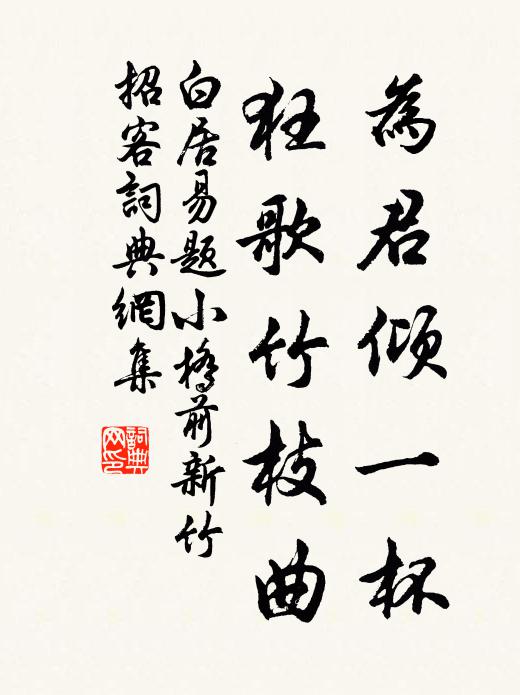 為君傾一杯
狂歌竹枝曲
白居易題小橋前新竹
招客詞典網集
詞典
网印